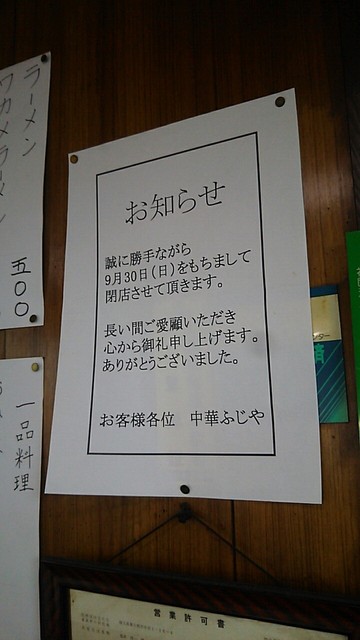 ラーメン
ワカメラーメン
五〇〇
一品料理
お知らせ
誠に勝手ながら
9月30日(日)をもちまして
閉店させて頂きます。
長い間ご愛顧いただき
心から御礼申し上げます。
ありがとうございました。
お客様各位 中華ふじや
ンター
営業許可書